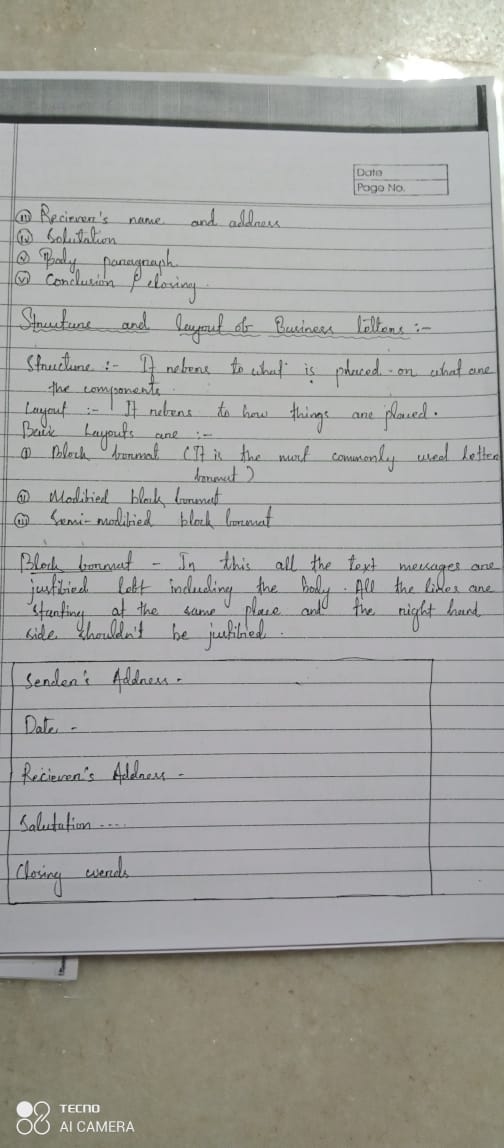 Date
Page No.
(iii) Reciever's name and address
(iv) Solutation
(v) Body paragraph.
(vi) Conclusion / closing.
Structure and layout of Business letters :-
Structure :- It refers to what is placed or what are
the components.
Layout :- It refers to how things are placed.
Basic Layouts are :-
(i) Block format (It is the most commonly used letter
format)
(ii) Modified block format
(iii) Semi-modified block format
Block format - In this all the text messages are
justified left including the body. All the lines are
starting at the same place and the right hand
side shouldn't be justified.
Sender's Address -
Date -
Reciever's Address -
Salutation ....
Closing words
TECNO
AI CAMERA